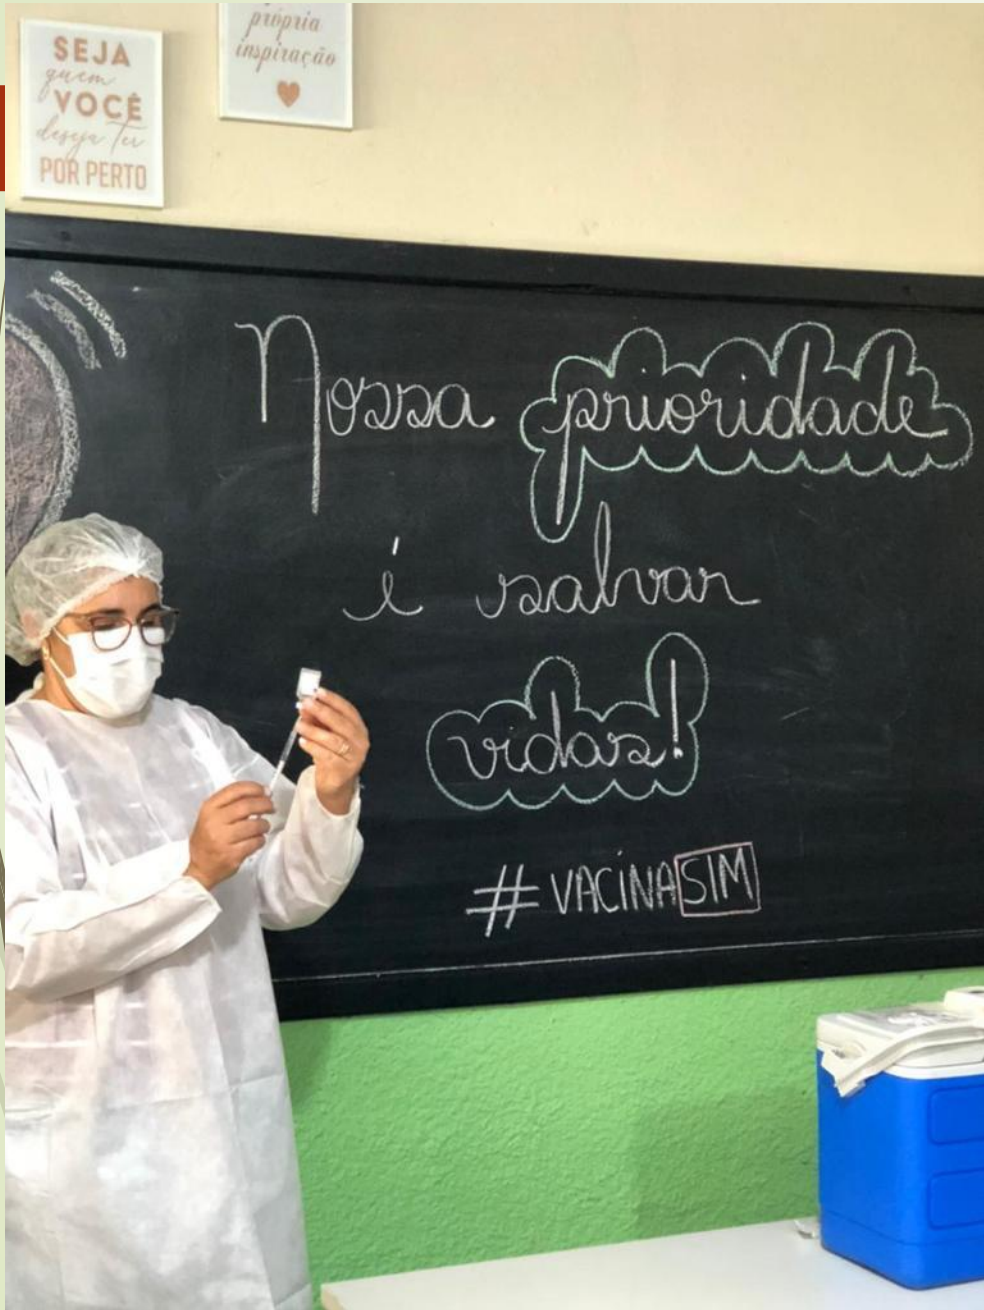 SEJA
quem
VOCÊ
deseja ter
POR PERTO
própria
inspiração
Nossa prioridade
é salvar
vidas!
#VACINASIM